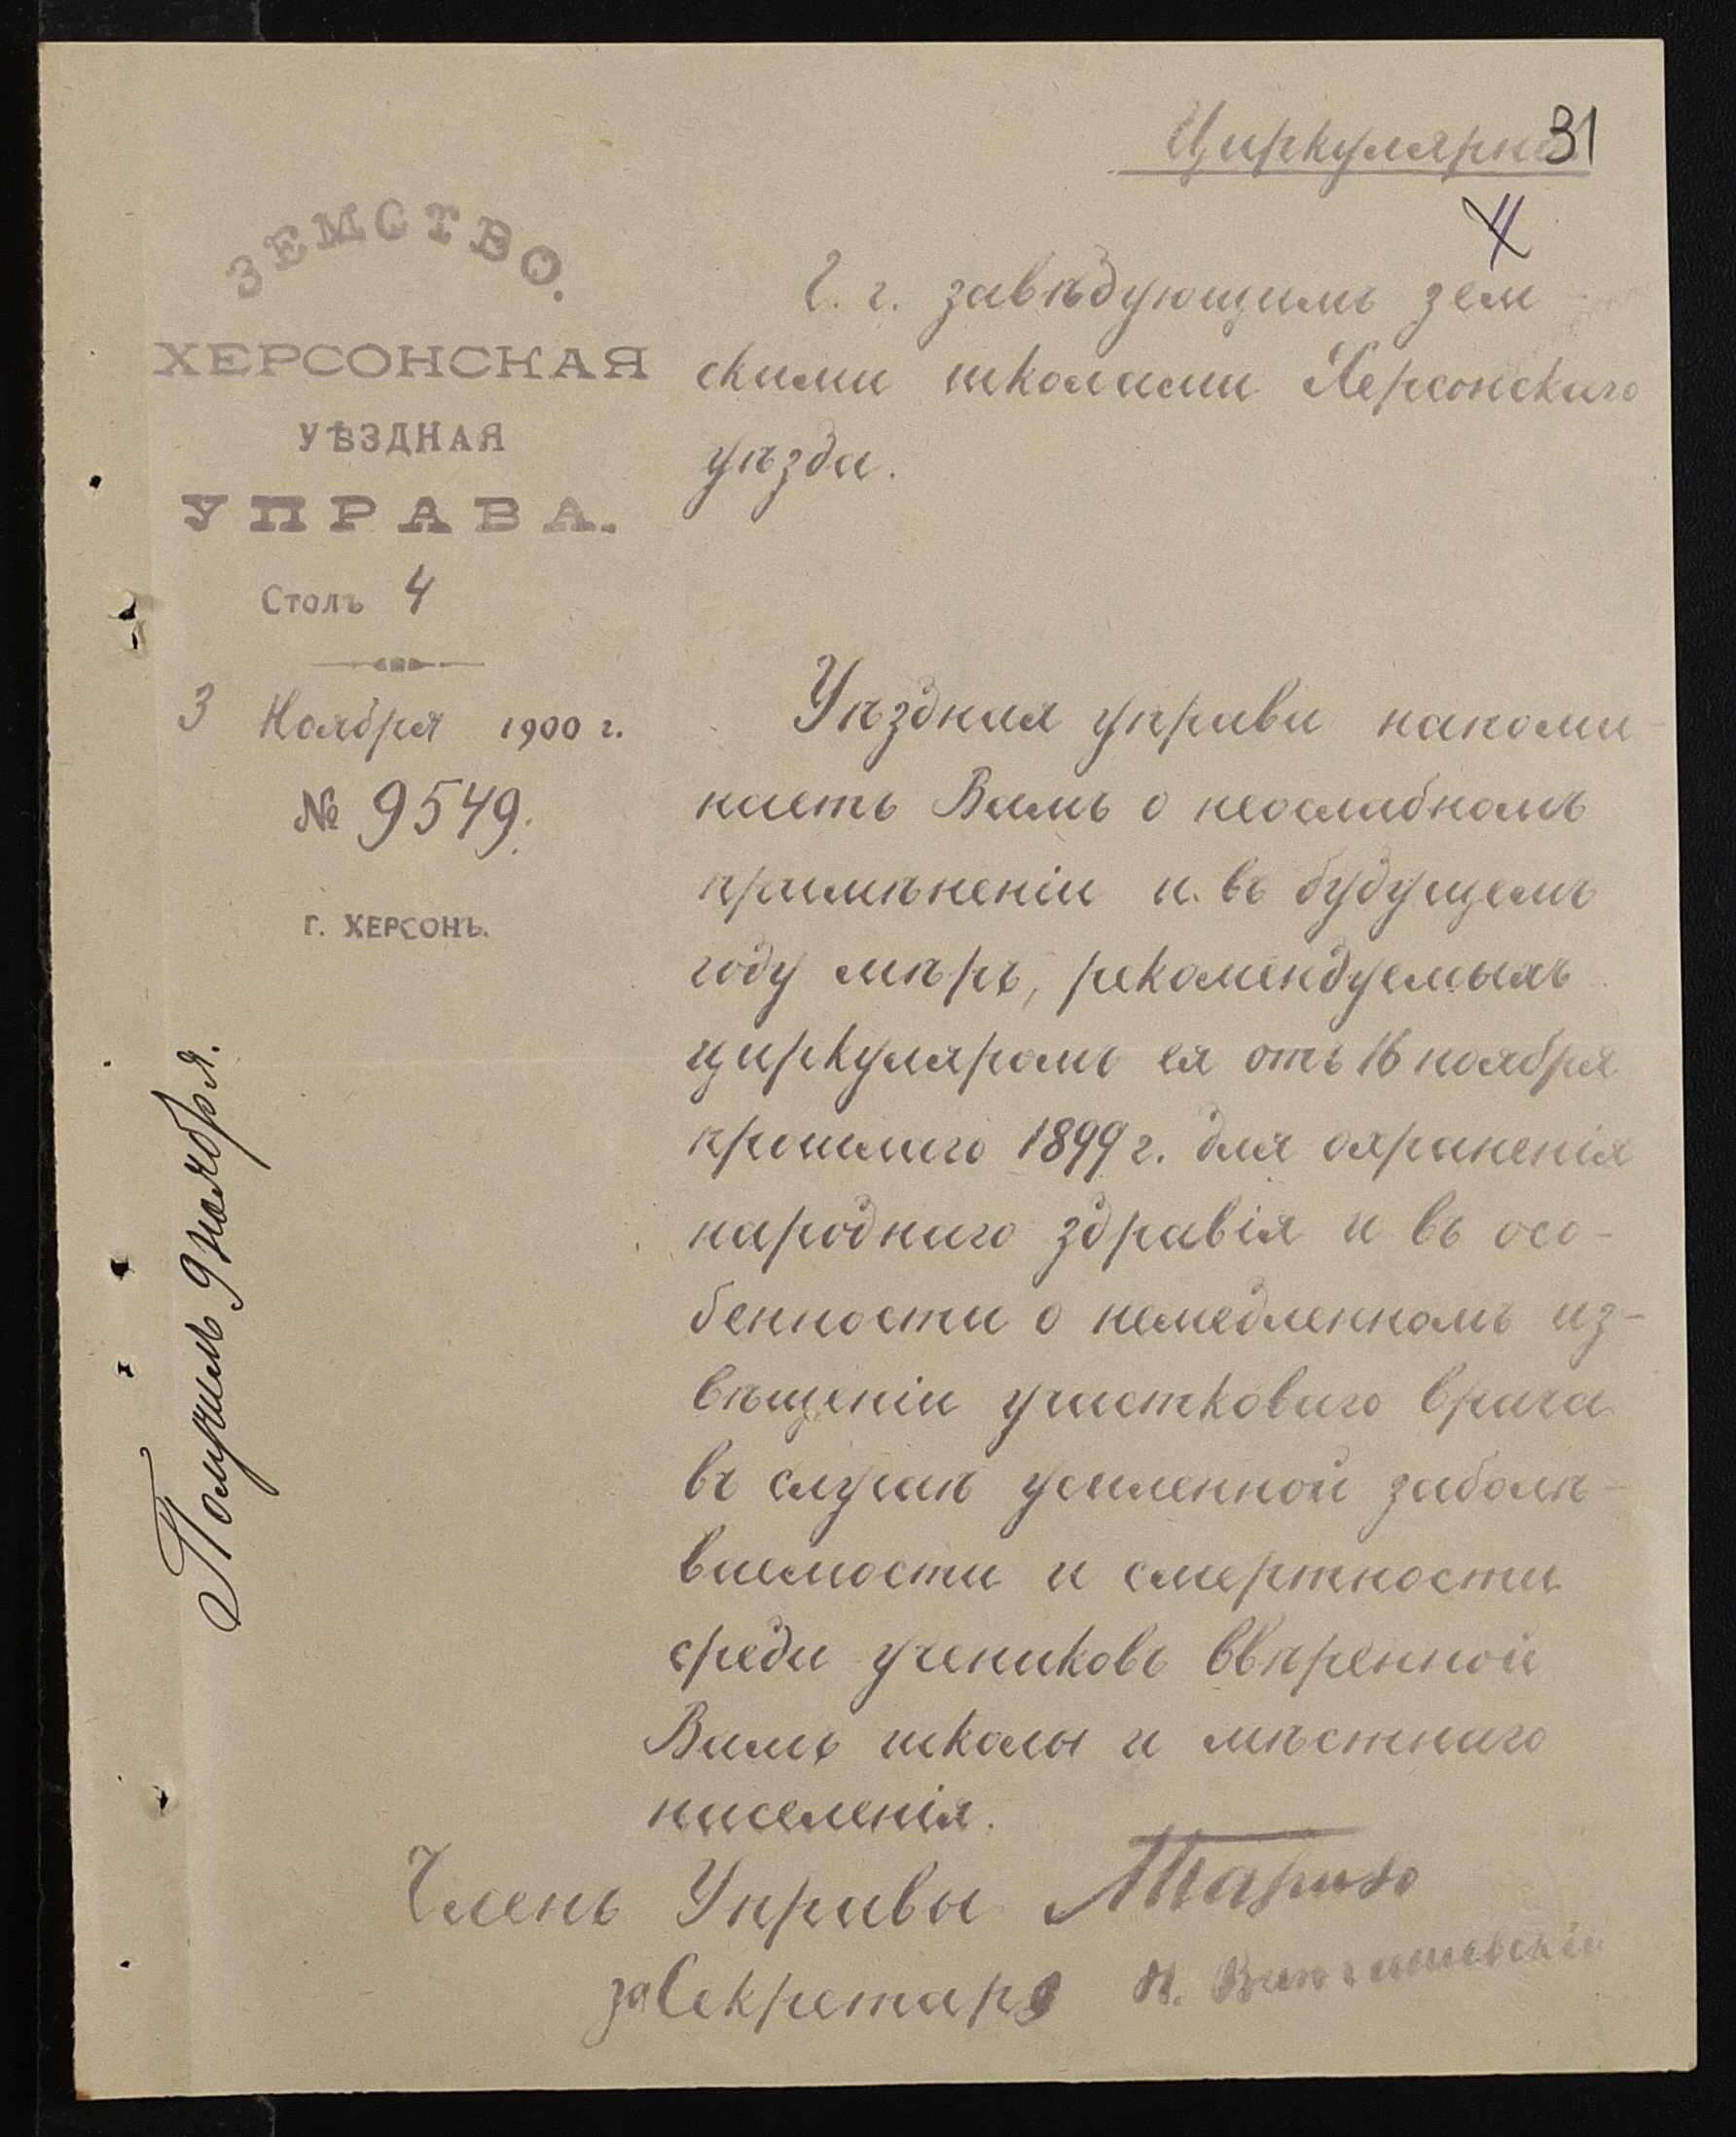 Циркулярно
31
4
ЗЕМСТВО.
ХЕРСОНСКАЯ
УѢЗДНАЯ
УПРАВА.
Столъ 4
3 Ноября 1900 г.
№ 9549.
Г. ХЕРСОНЪ.
Получилъ 9 ноября.
Г. г. завѣдующимъ зем-
скими школами Херсонскаго
уѣзда.
Уѣздная управа напоми-
наетъ Вамъ о неослабномъ
примѣненіи и въ будущемъ
году мѣръ, рекомендуемыхъ
циркуляромъ ея отъ 16 ноября
прошлаго 1899 г. для охраненія
народнаго здравія и въ осо-
бенности о немедленномъ из-
вѣщеніи участковаго врача
въ случаѣ усиленной заболѣ-
ваемости и смертности
среди учениковъ ввѣренной
Вамъ школы и мѣстнаго
населенія.
Членъ Управы
за Секретаря Н.